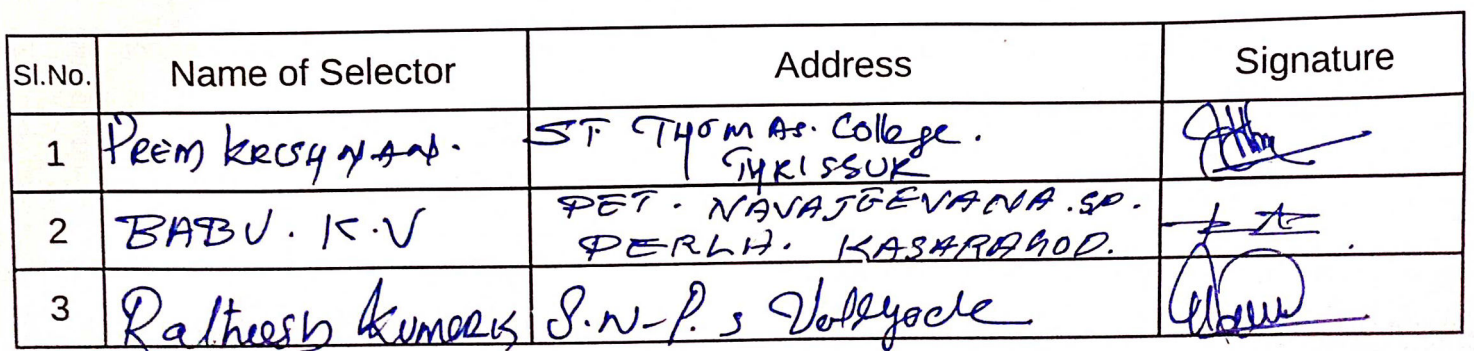 Sl.No. Name of Selector Address Signature
1 PREM KRISHNAN. ST THOMAS. College.
THRISSUR
2 BABU. K.V PET. NAVAJEEVANA.SP.
PERLA. KASARAGOD.
3 Ratheesh Kumar S.N-P.S